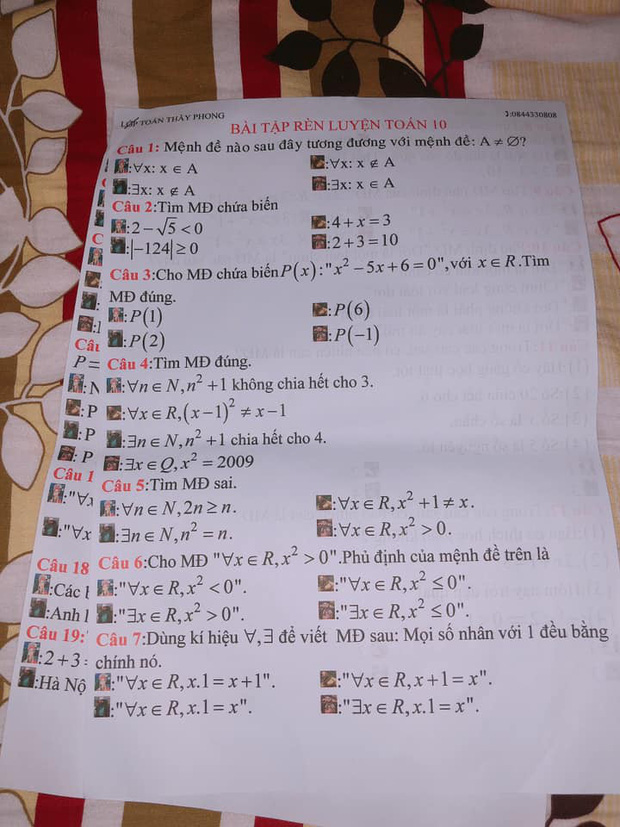 LỚP TOÁN THẦY PHONG
:0844330808
BÀI TẬP RÈN LUYỆN TOÁN 10
Câu 1: Mệnh đề nào sau đây tương đương với mệnh đề: A ≠ ∅?
:∀x: x ∈ A :∀x: x ∉ A
:∃x: x ∉ A :∃x: x ∈ A
Câu 2:Tìm MĐ chứa biến
:2 − √5 < 0 :4 + x = 3
:|−124| ≥ 0 :2 + 3 = 10
Câu 3:Cho MĐ chứa biến P(x):"x² − 5x + 6 = 0",với x ∈ R.Tìm
MĐ đúng.
:P(1) :P(6)
:P(2) :P(−1)
Câu 4:Tìm MĐ đúng.
:∀n ∈ N,n² + 1 không chia hết cho 3.
:∀x ∈ R,(x − 1)² ≠ x − 1
:∃n ∈ N,n² + 1 chia hết cho 4.
:∃x ∈ Q,x² = 2009
Câu 5:Tìm MĐ sai.
:∀n ∈ N,2n ≥ n. :∀x ∈ R,x² + 1 ≠ x.
:∃n ∈ N,n² = n. :∀x ∈ R,x² > 0.
Câu 6:Cho MĐ "∀x ∈ R,x² > 0".Phủ định của mệnh đề trên là
:"∀x ∈ R,x² < 0". :"∀x ∈ R,x² ≤ 0".
:"∃x ∈ R,x² > 0". :"∃x ∈ R,x² ≤ 0".
Câu 7:Dùng kí hiệu ∀,∃ để viết MĐ sau: Mọi số nhân với 1 đều bằng
chính nó.
:"∀x ∈ R,x.1 = x + 1". :"∀x ∈ R,x + 1 = x".
:"∀x ∈ R,x.1 = x". :"∃x ∈ R,x.1 = x".
P =
:N
:P
:P
:P
:"∀x
Câu 18
:Các
:Anh
Câu 19:
:2 + 3
:Hà Nộ